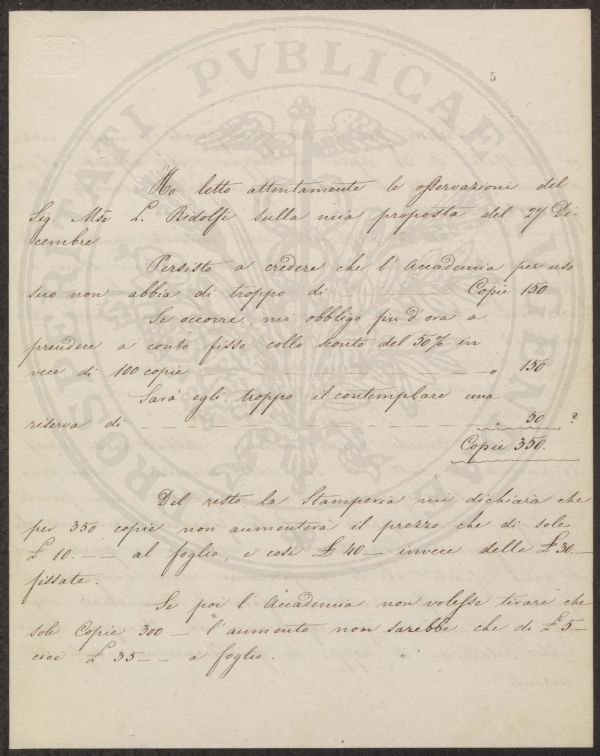 5
Ho letto attentamente le osservazioni del
Sig. Mse L. Ridolfi sulla mia proposta del 27 Di
cembre
Persisto a credere che l'Accademia per uso
suo non abbia di troppo di ——— Copie 150
Se occorre, mi obbligo più d'ora a
prendere a conto fisso collo sconto del 50% in
vece di 100 copie ——— „ 150
Sarà egli troppo il contemplare una
riserva di ——— „ 50 ?
Copie 350.
Del resto la Stamperia mi dichiara che
per 350 copie non aumenterà il prezzo che di sole
£ 10.—— al foglio, e così £ 40— invece delle £ 30.—
fissate.
Se poi l'Accademia non volesse tirare che
sole Copie 300 — l'aumento non sarebbe che di £ 5—
cioè £ 35—— a foglio.
PROSPERITATI PVBLICAE AVGENDAE